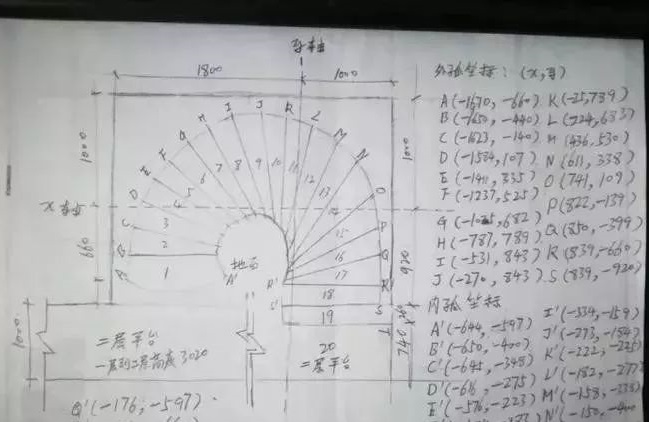 y轴
1800
1000
外弧坐标：(x,y)
A(-1670,-660) K(-25,789)
B(-1650,-440) L(224,683)
C(-1623,-140) M(436,530)
D(-1534,107) N(611,338)
E(-1411,335) O(741,109)
F(-1237,525) P(822,-139)
G(-1025,682) Q(850,-399)
H(-787,789) R(839,-660)
I(-531,843) S(839,-920)
J(-270,843)
内弧坐标
A'(-644,-597)
B'(-650,-400)
C'(-645,-348)
D'(-616,-275)
E'(-576,-223)
I'(-334,-159)
J'(-273,-184)
K'(-222,-225)
L'(-182,-277)
M'(-158,-338)
N'(-150,-400
1000
660
1000
1000
920
740
x轴
A
B
C
D
E
F
G
H
I
J
K
L
M
N
O
P
Q
R
S
T
1
2
3
4
5
6
7
8
9
10
11
12
13
14
15
16
17
18
19
20
地面
A'
R'
S'
二层平台
一层到二层高度3020
二层平台
Q'(-176,-597)